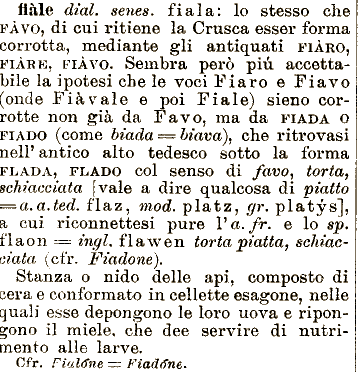 fiàle dial. senes. fiala: lo stesso che
FÀVO, di cui ritiene la Crusca esser forma
corrotta, mediante gli antiquati FIÀRO,
FIÀRE, FIÀVO. Sembra però piú accetta-
bile la ipotesi che le voci Fiaro e Fiavo
(onde Fiàvale e poi Fiale) sieno cor-
rotte non già da Favo, ma da FIADA O
FIADO (come biada = biava), che ritrovasi
nell'antico alto tedesco sotto la forma
FLADA, FLADO col senso di favo, torta,
schiacciata [vale a dire qualcosa di piatto
= a.a.ted. flaz, mod. platz, gr. platýs],
a cui riconnettesi pure l'a. fr. e lo sp.
flaon = ingl. flawen torta piatta, schiac-
ciata (cfr. Fiadone).
Stanza o nido delle api, composto di
cera e conformato in cellette esagone, nelle
quali esse depongono le loro uova e ripon-
gono il miele, che dee servire di nutri-
mento alle larve.
Cfr. Fialóne = Fiadóne.